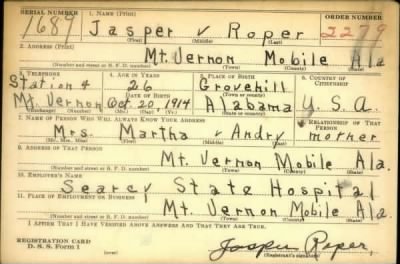 SERIAL NUMBER 1. NAME (Print) ORDER NUMBER
1689 Jasper v Roper 2279
(First) (Middle) (Last)
2. ADDRESS (Print)
Mt. Vernon Mobile Ala
(Number and street or R. F. D. number) (Town) (County) (State)
3. TELEPHONE 4. AGE IN YEARS 5. PLACE OF BIRTH 6. COUNTRY OF CITIZENSHIP
Station 4 26 Grovehill
DATE OF BIRTH (Town or county)
Mt. Vernon Oct. 20, 1914 Alabama U.S.A.
(State or country)
7. NAME OF PERSON WHO WILL ALWAYS KNOW YOUR ADDRESS 8. RELATIONSHIP OF THAT PERSON
Mrs. Martha v Andry mother
(Mr., Mrs., Miss) (First) (Middle) (Last)
9. ADDRESS OF THAT PERSON
Mt. Vernon Mobile Ala.
(Number and street or R. F. D. number) (Town) (County) (State)
10. EMPLOYER'S NAME
Searcy State Hospital
11. PLACE OF EMPLOYMENT OR BUSINESS
Mt. Vernon Mobile Ala.
(Number and street or R. F. D. number) (Town) (County) (State)
I AFFIRM THAT I HAVE VERIFIED ABOVE ANSWERS AND THAT THEY ARE TRUE.
REGISTRATION CARD
D. S. S. Form 1 Jasper Roper,
(Registrant's signature)